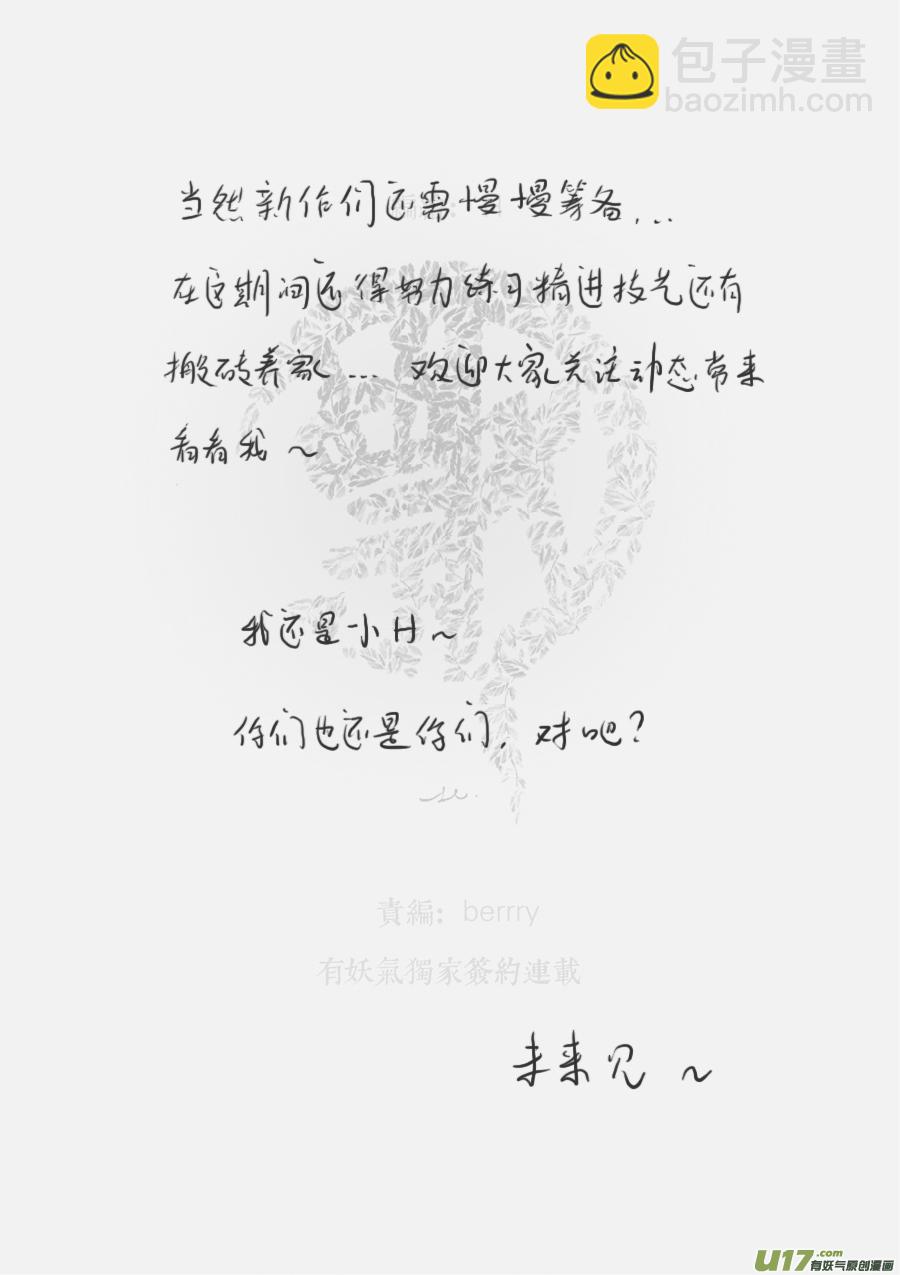 包子漫畫
baozimh.com
当然新作们还需慢慢筹备...
在这期间还得努力练习精进技艺还有
搬砖养家... 欢迎大家关注动态常来
看看我~
我还是小H~
你们也还是你们，对吧？
責編：berrry
有妖氣獨家簽約連載
未来见~
U17.com
有妖气原创漫画